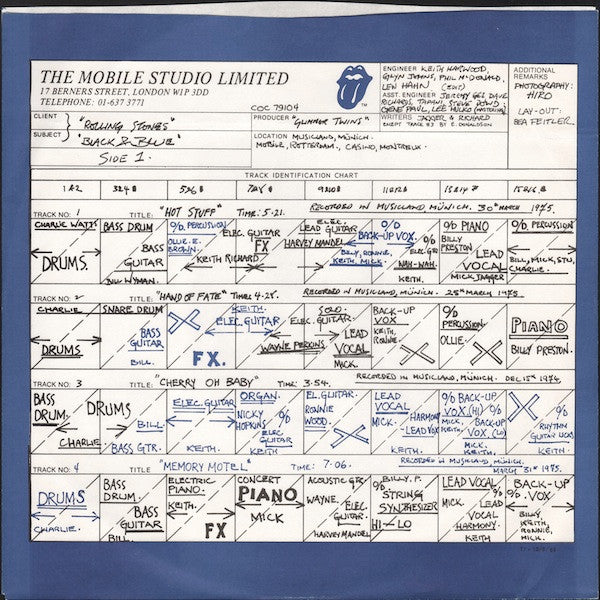 THE MOBILE STUDIO LIMITED
17 BERNERS STREET, LONDON W1P 3DD
TELEPHONE: 01-637 3771
COC 79104
CLIENT "ROLLING STONES"
SUBJECT "BLACK & BLUE"
SIDE 1.
ENGINEER KEITH HARWOOD,
GLYN JOHNS, PHIL McDONALD,
LEW HAHN (EDIT)
ASST. ENGINEER JEREMY GEE, DAVE
RICHARDS, TAPANI, STEVE DOWD,
GENE PAUL, LEE HULKO (MASTERING)
PRODUCER "GLIMMER TWINS"
WRITERS JAGGER & RICHARD
EXCEPT TRACK #3 BY E. DONALDSON
LOCATION MUSICLAND, MÜNICH.
MOBILE, ROTTERDAM, CASINO, MONTREUX.
ADDITIONAL
REMARKS
PHOTOGRAPHY:
HIRO
LAY-OUT:
BEA FEITLER.
TRACK IDENTIFICATION CHART
1 & 2 3 & 4 5 & 6 7 & 8 9 & 10 11 & 12 13 & 14 15 & 16
TRACK NO: 1 TITLE: "HOT STUFF" TIME: 5-21. RECORDED IN MUSICLAND, MÜNICH. 30th MARCH 1975.
CHARLIE WATTS
DRUMS.
BASS DRUM
BASS
GUITAR
BILL WYMAN.
% PERCUSSION
OLLIE E.
BROWN.
KEITH RICHARD
ELEC. GUITAR
FX
ELEC.
LEAD GUITAR
HARVEY MANDEL
O/D
BACK-UP VOX.
BILLY, RONNIE,
KEITH, MICK
ELEC GTR
WAH-WAH.
KEITH.
% PIANO
BILLY
PRESTON
LEAD
VOCAL
MICK JAGGER
%. PERCUSSION
BILL, MICK, STU,
CHARLIE.
TRACK NO: 2 TITLE: "HAND OF FATE" TIME: 4-28. RECORDED IN MUSICLAND, MÜNICH. 25th MARCH, 1975.
CHARLIE
DRUMS
SNARE DRUM
BASS
GUITAR
BILL.
FX.
KEITH.
ELEC. GUITAR
SOLO.
ELEC. GUITAR.
WAYNE PERKINS
LEAD
VOCAL
MICK
BACK-UP
VOX
KEITH,
RONNIE
%
PERCUSSION.
OLLIE.
PIANO
BILLY PRESTON.
TRACK NO: 3 TITLE: "CHERRY OH BABY" TIME: 3-54. RECORDED IN MUSICLAND, MÜNICH. DEC 15th 1974.
BASS
DRUM
DRUMS
CHARLIE
BILL
BASS GTR.
ELEC. GUITAR
KEITH.
ORGAN.
NICKY
HOPKINS
%
ELEC.
GUITAR
KEITH
EL. GUITAR
RONNIE
WOOD.
LEAD
VOCAL
MICK.
HARMONY
-LEAD VOX
KEITH.
% BACK-UP
VOX. (HI)
MICK.
KEITH
% BACK-UP
VOX. (LO)
MICK.
KEITH.
%
RHYTHM
GUITAR LICKS
KEITH.
TRACK NO: 4 TITLE: "MEMORY MOTEL" TIME: 7-06. RECORDED IN MUSICLAND, MÜNICH. MARCH 31st 1975.
DRUMS
CHARLIE.
BASS
DRUM.
BASS
GUITAR
BILL
ELECTRIC
PIANO.
KEITH.
FX
CONCERT
PIANO
MICK
ACOUSTIC GTR
WAYNE.
ELEC.
GUITAR.
HARVEY MANDEL
BILLY. P.
%
STRING
SYNTHESIZER
HI-LO
LEAD VOCAL
MICK.
LEAD
VOCAL
HARMONY.
KEITH
BACK-UP
%. VOX
BILLY,
KEITH,
RONNIE,
MICK.